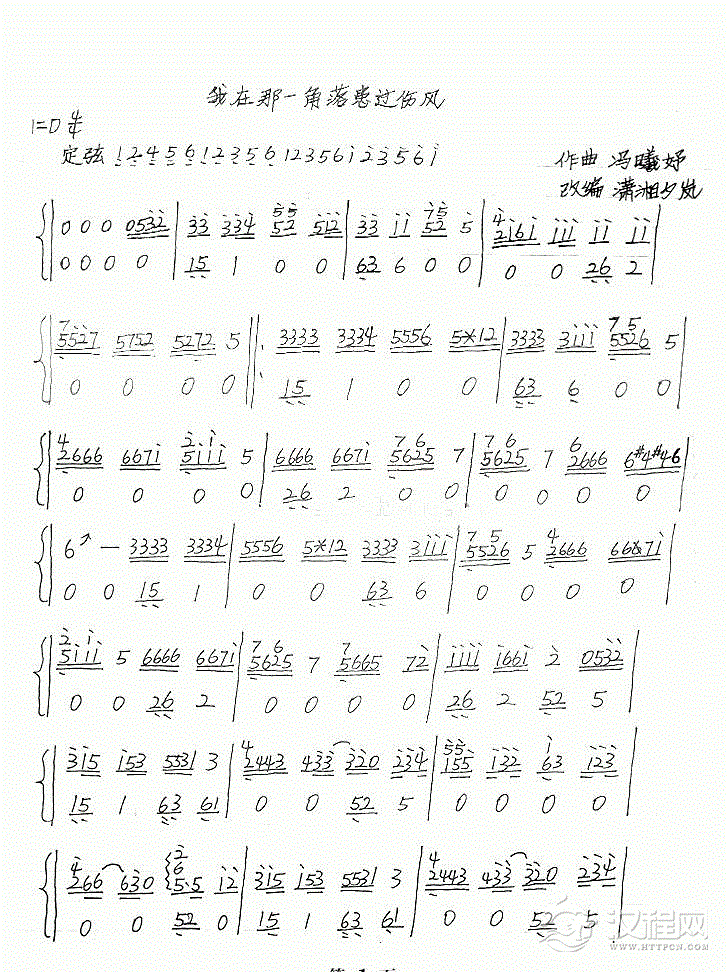 我在那一角落患过伤风
1=D 4/4
定弦 1 2 4 5 6 1 2 3 5 6 1 2 3 5 6 i 2 3 5 6 i
作曲 冯曦妤
改编 潇湘夕岚
0 0 0 0532 | 33 334 55 52 512 | 33 11 75 52 5 | 4 2161 111 11 11
0 0 0 0 | 15 1 0 0 | 63 6 0 0 | 0 0 26 2
7 5527 5752 5272 5 |: 3333 3334 5556 5*12 | 3333 3111 75 5526 5
0 0 0 0 | 15 1 0 0 | 63 6 0 0
4 2666 6671 21 5111 5 | 6666 6671 76 5625 7 | 76 5625 7 6 2666 6#4#46
0 0 0 0 | 26 2 0 0 | 0 0 0 0
6 — 3333 3334 | 5556 5*12 3333 3111 | 75 5526 5 4 2666 6671
0 0 15 1 | 0 0 63 6 | 0 0 0 0
21 5111 5 6666 6671 | 76 5625 7 76 5665 72 | 1111 1661 2 0532
0 0 26 2 | 0 0 0 0 | 26 2 52 5
315 153 5531 3 | 4 2443 433 320 234 | 55 155 132 1 63 123
15 1 63 61 | 0 0 52 5 | 0 0 0 0
4 266 630 2 6 5·5 12 | 315 153 5531 3 | 4 2443 433 320 234
0 0 52 0 | 15 1 63 61 | 0 0 52 5
汉程网
HTTPCN.COM